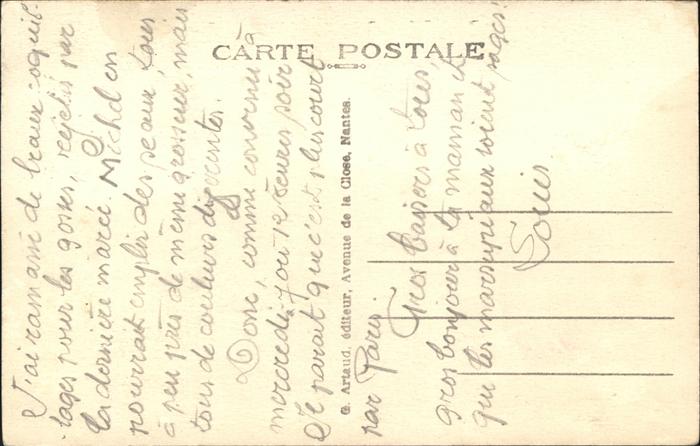 CARTE POSTALE
J'ai ramassé de beaux coquil-
lages pour les gosses, rejetés par
la dernière marée. Michel en
pourrait emplir des seaux, tous
à peu près de même grosseur, mais
tous de couleurs différentes.
Donc, comme convenu à
mercredi, 7 ou 12 heures soir
Il paraît que c'est plus court
par Paris.
Gros baisers à toutes,
gros bonjour à ta maman et
que les marsupiaux soient sages!
Louis
G. Artaud, éditeur, Avenue de la Close, Nantes.